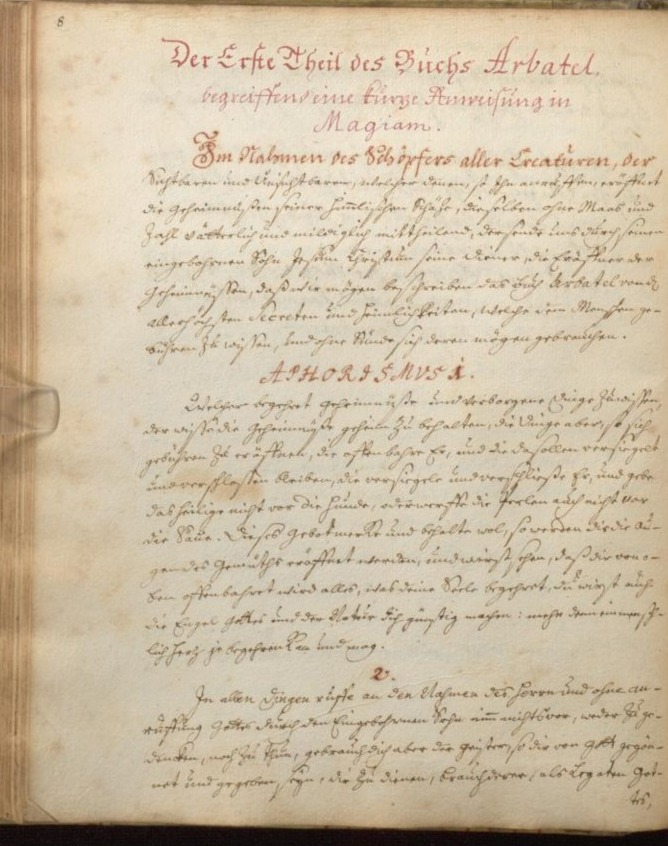 8
Der Erste Theil des Buchs Arbatel,
begreiffend eine kurtze Anweisung in
Magiam.
Im Nahmen des Schöpfers aller Creaturen, der
Sichtbaren und Unsichtbaren, welcher denen, so Ihn anruffen, eröffnet
die Geheimnüßen seiner himlischen Schätze, dieselben ohne Maas und
Zahl vätterlich und mildiglich mittheilend, der sende uns durch seinen
eingebohrnen Sohn Jesum Christum seine Diener, die Eröffner der
Geheimnüssen, daß wir mögen beschreiben das Buch Arbatel von d.
allerhöchsten Secreten und heimlichkeiten, welche dem Menschen ge-
bühren zu wissen, und ohne Sünde sich deren mögen gebrauchen.
APHORISMVS 1.
Welcher begehret Geheimnüße und verborgene Dinge zu wissen,
der wisse die Geheimnüße geheim zu behalten, die Dinge aber, so sich
gebühren zu eröffnen, die offenbahre Er, und die da sollen versiegelt
und verschlossen bleiben, die versiegele und verschließe Er, und gebe
das heilige nicht vor die Hunde, oder werffe die Perlen auch nicht vor
die Säue. Dieses Gebot mercke und behalte wol, so werden dir die Au-
gen des Gemüths eröffnet werden, und wirst sehen, daß dir von o-
ben offenbahret wird alles, was deine Seele begehret, du wirst auch
die Engel Gottes und der Natur dich günstig machen: mehr denn ein mensch-
lich hertz je begehren kan und mag.
2.
In allen Dingen ruffe an den Nahmen des Herrn und ohne An-
ruffung Gottes durch den Eingebohrnen Sohn nim nichts vor, weder zu ge-
dencken, noch zu thun, gebrauch dich aber der Geister, so dir von Gott gegön-
net und gegeben seyn, dir zu dienen, brauch derer, als Legaten Got-
tes,